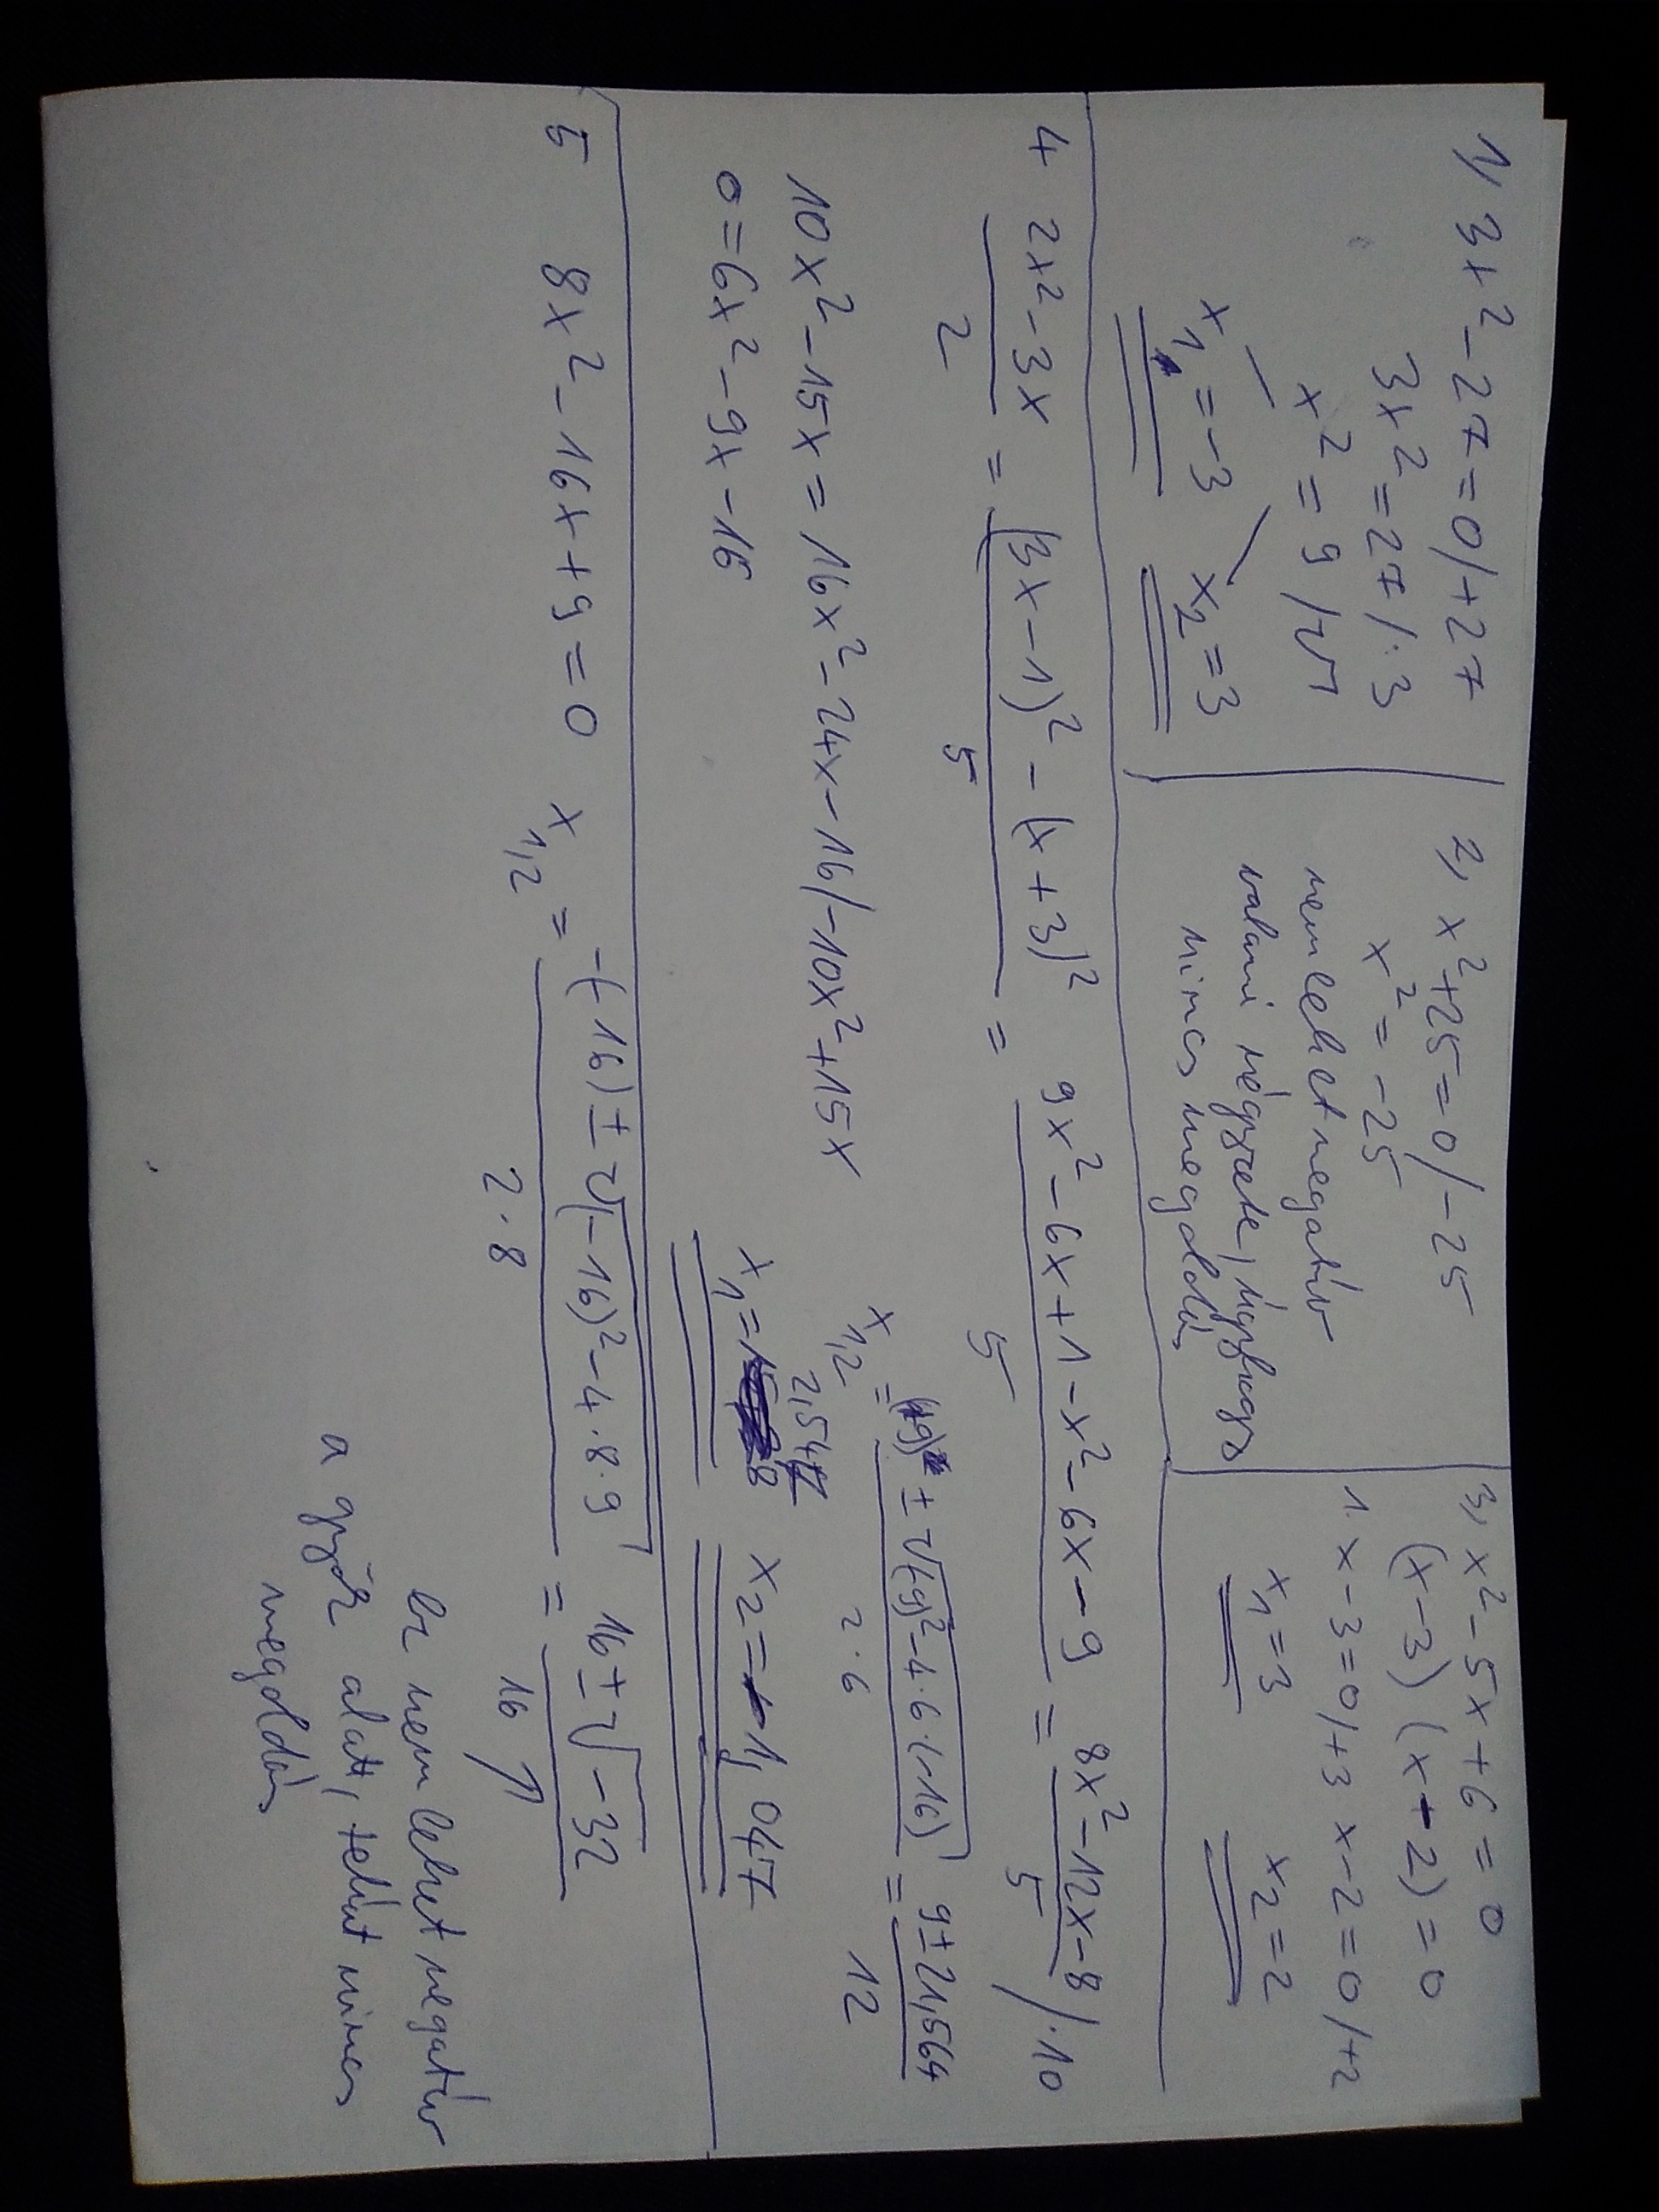 1, 3x² - 27 = 0 /+27
3x² = 27 /:3
x² = 9 /√
x₁ = -3 x₂ = 3
2, x² + 25 = 0 /-25
x² = -25
nem lehet negatív
valami négyzete,
nincs megoldás
3, x² - 5x + 6 = 0
(x-3)(x-2) = 0
1. x-3=0/+3 x-2=0/+2
x₁ = 3 x₂ = 2
4 (2x² - 3x)/2 = ((3x-1)² - (x+3)²)/5 = (9x² - 6x + 1 - x² - 6x - 9)/5 = (8x² - 12x - 8)/5 /·10
10x² - 15x = 16x² - 24x - 16 /-10x² + 15x
0 = 6x² - 9x - 16
x₁,₂ = ((+9) ± √((-9)² - 4·6·(-16)))/(2·6) = (9 ± 21,564)/12
x₁ = 2,547 x₂ = -1,047
5 8x² - 16x + 9 = 0 x₁,₂ = (-(-16) ± √((-16)² - 4·8·9))/(2·8) = (16 ± √-32)/16
ez nem lehet negatív
a gyök alatt, tehát nincs
megoldás